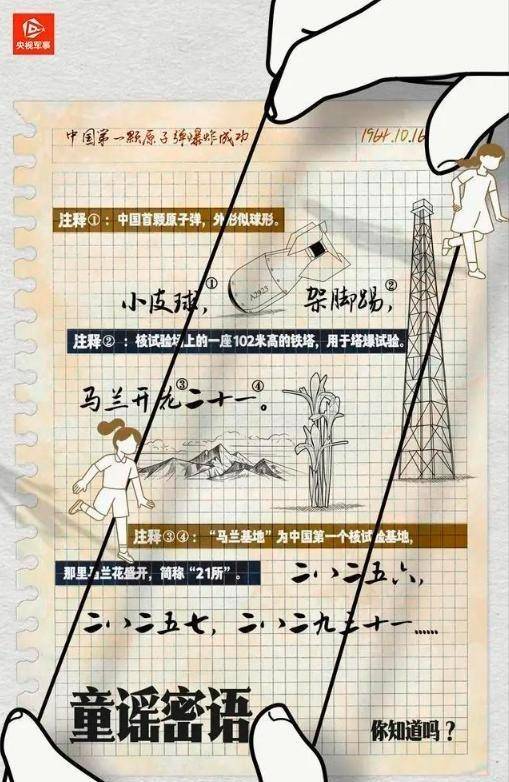 央视军事
中国第一颗原子弹爆炸成功 1964.10.16
注释①：中国首颗原子弹，外形似球形。
A2923
小皮球①，架脚踢②，
注释②：核试验场上的一座102米高的铁塔，用于塔爆试验。
马兰开花③二十一④。
注释③④：“马兰基地”为中国第一个核试验基地，
那里马兰花盛开，简称“21所”。
二八二五六，
二八二五七，二八二九三十一……
童谣密语
你知道吗？